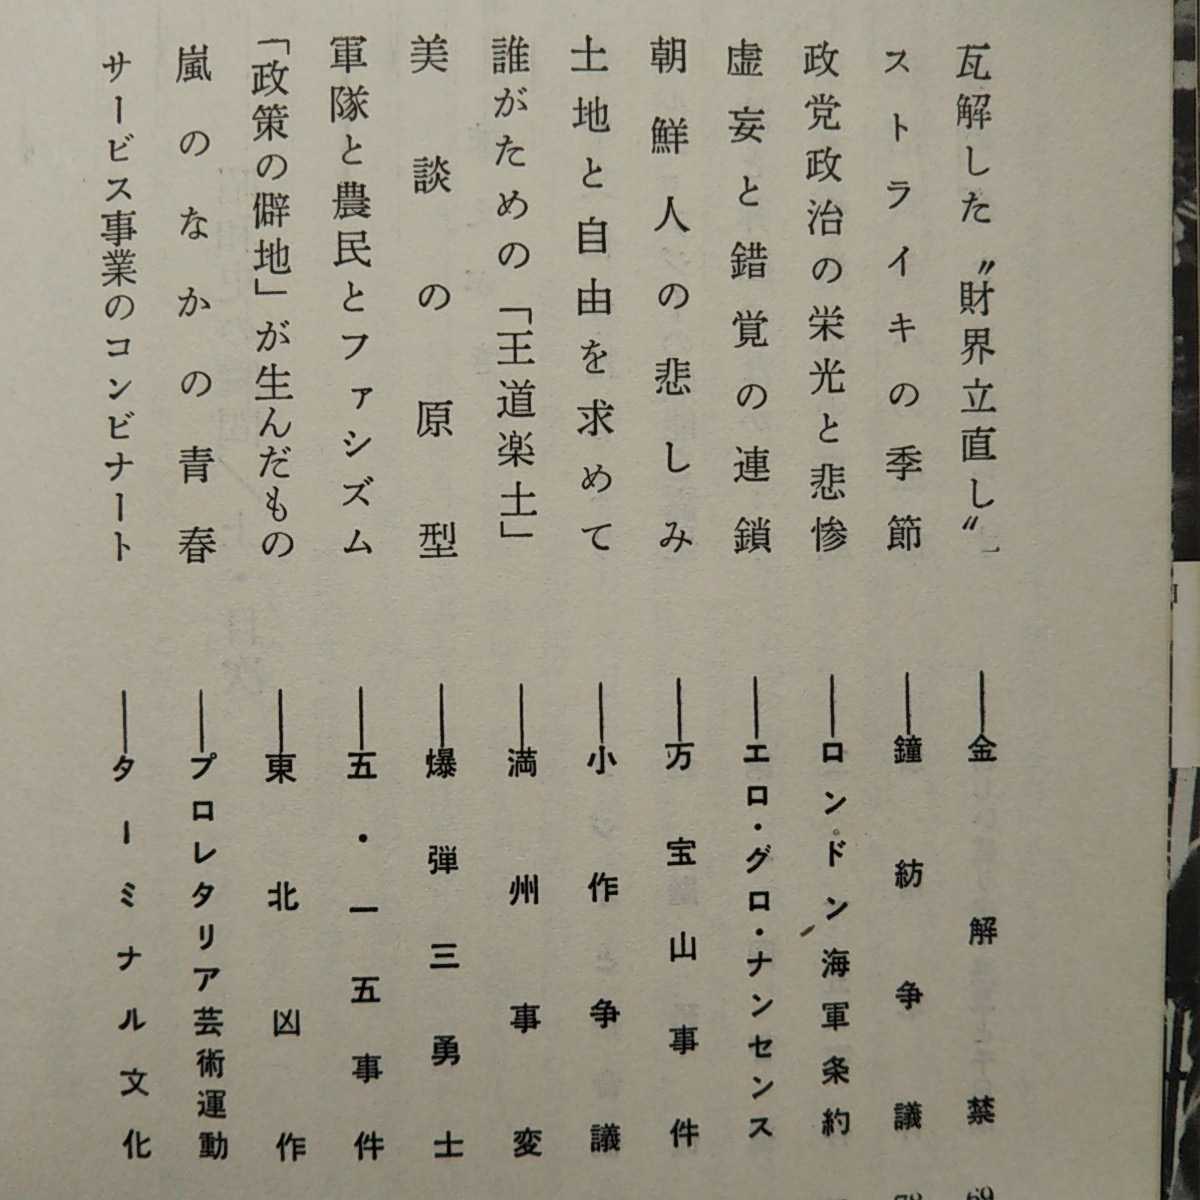 瓦解した〝財界立直し〟――金解禁 69
ストライキの季節――鐘紡争議
政党政治の栄光と悲惨――ロンドン海軍条約
虚妄と錯覚の連鎖――エロ・グロ・ナンセンス
朝鮮人の悲しみ――万宝山事件
土地と自由を求めて――小作争議
誰がための「王道楽土」――満州事変
美談の原型――爆弾三勇士
軍隊と農民とファシズム――五・一五事件
「政策の僻地」が生んだもの――東北凶作
嵐のなかの青春――プロレタリア芸術運動
サービス事業のコンビナート――ターミナル文化